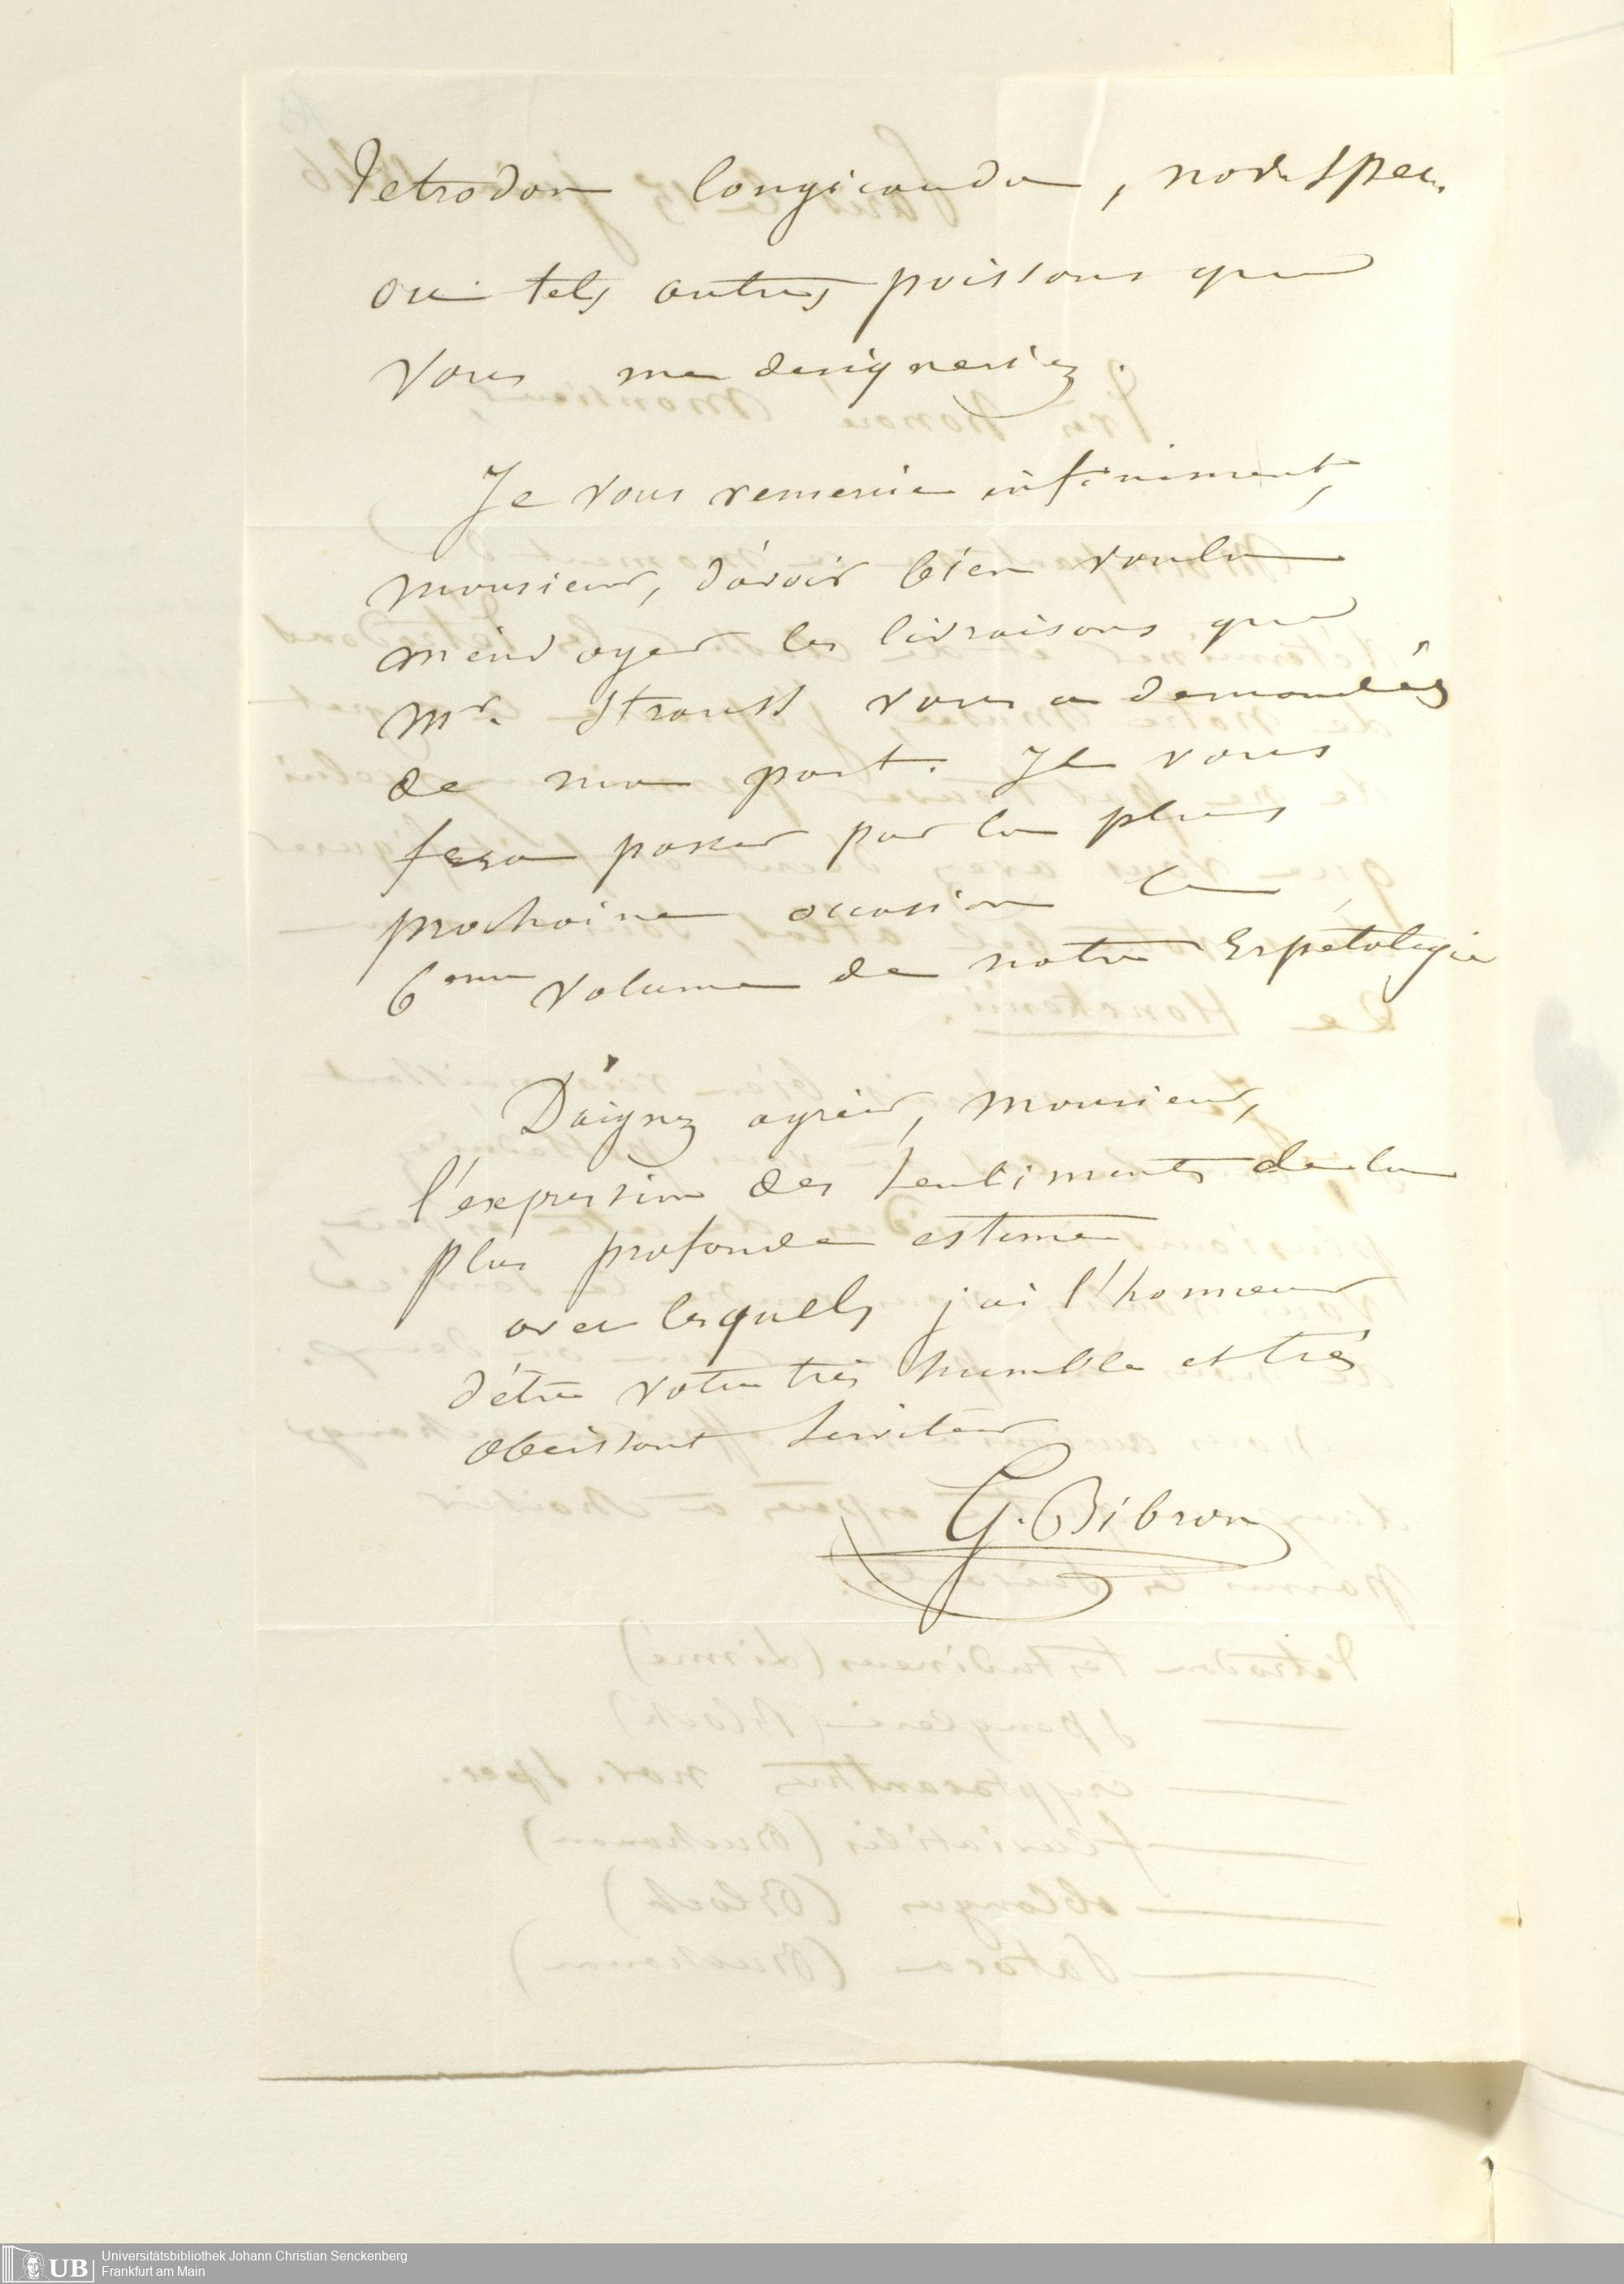 Tetrodon longicauda, nov. spec.
ou tels autres poissons que
vous me designeriez.
Je vous remercie infiniment,
monsieur, d'avoir bien voulu
m'envoyer les livraisons que
Mr. Strauss vous a demandés
de ma part. Je vous
ferai passer par la plus
prochaine occasion le
6eme volume de notre Erpétologie
Daignez agréer, monsieur,
l'expression des sentiments de la
plus profonde estime
avec lesquels j'ai l'honneur
d'être votre très humble et très
obeissant serviteur
G. Bibron
UB Universitätsbibliothek Johann Christian Senckenberg
Frankfurt am Main